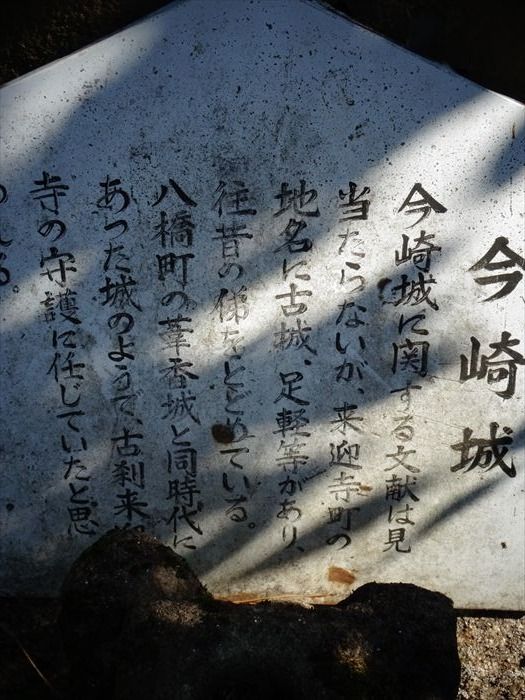 今崎城
今崎城に関する文献は見
当たらないが、来迎寺町の
地名に古城、足軽等があり、
往昔の俤をとどめている。
八橋町の葦香城と同時代に
あった城のようで、古刹来迎
寺の守護に任じていたと思
われる。